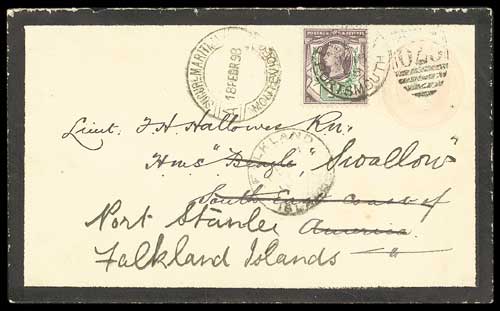 SUCURL MARITIMA
18 FEBR 98
MONTEVIDEO
POSTAGE & REVENUE
PORTSMOUTH
Lieut. F H Hallowes Rn.
H.M.S "Beagle" Swallow"
South East Coast of
America
Port Stanley
Falkland Islands
FALKLAND
ISLANDS